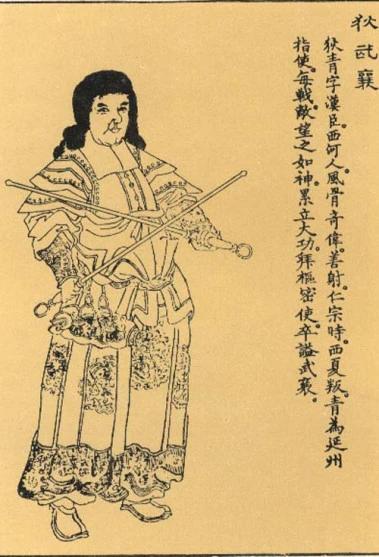 狄武襄
狄青字漢臣。西河人。風骨奇偉。善射。仁宗時。西夏叛。青為延州
指使。每戰敵望之如神。累立大功。拜樞密使。卒謚武襄。